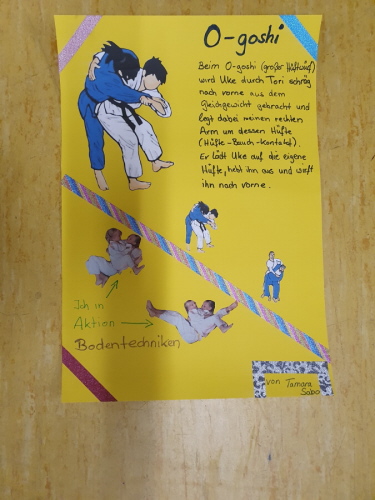 O-goshi
Beim O-goshi (großer Hüftwurf)
wird Uke durch Tori schräg
nach vorne aus dem
Gleichgewicht gebracht und
legt dabei meinen rechten
Arm um dessen Hüfte
(Hüfte-Bauch-Kontakt).
Er lädt Uke auf die eigene
Hüfte, hebt ihn aus und wirft
ihn nach vorne.
Ich in
Aktion
Bodentechniken
von Tamara
Sabo